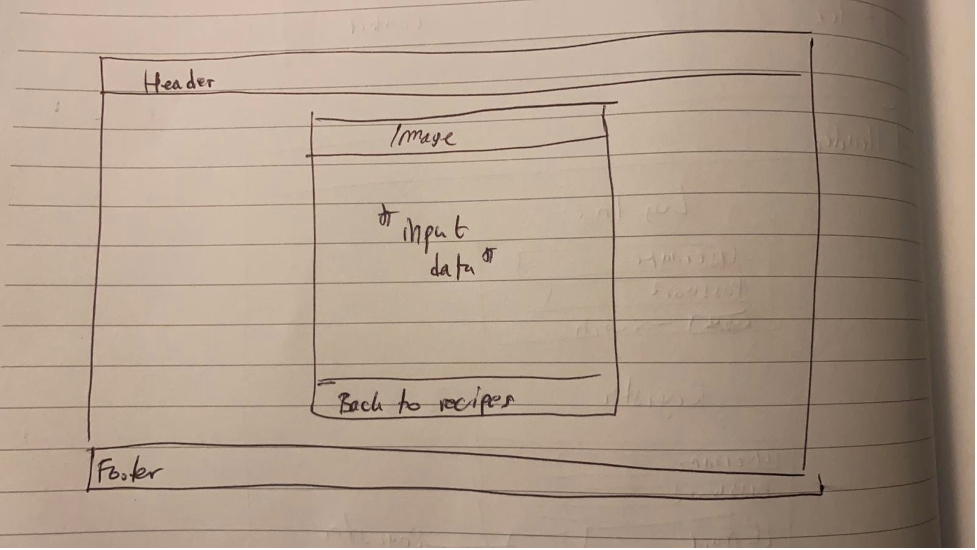 Header
Image
* input
data *
Back to recipes
Footer